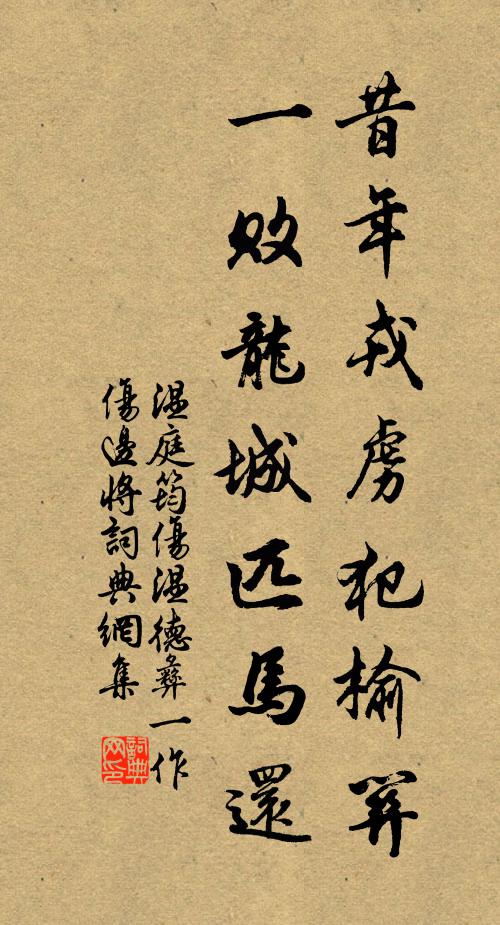 昔年戎虜犯榆關
一敗龍城匹馬還
温庭筠傷温德彝一作
傷邊將詞典網集
詞典
网印